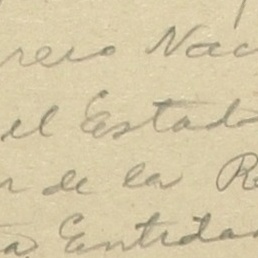 reso Nac
el Estado
r de la Re
a Entidad